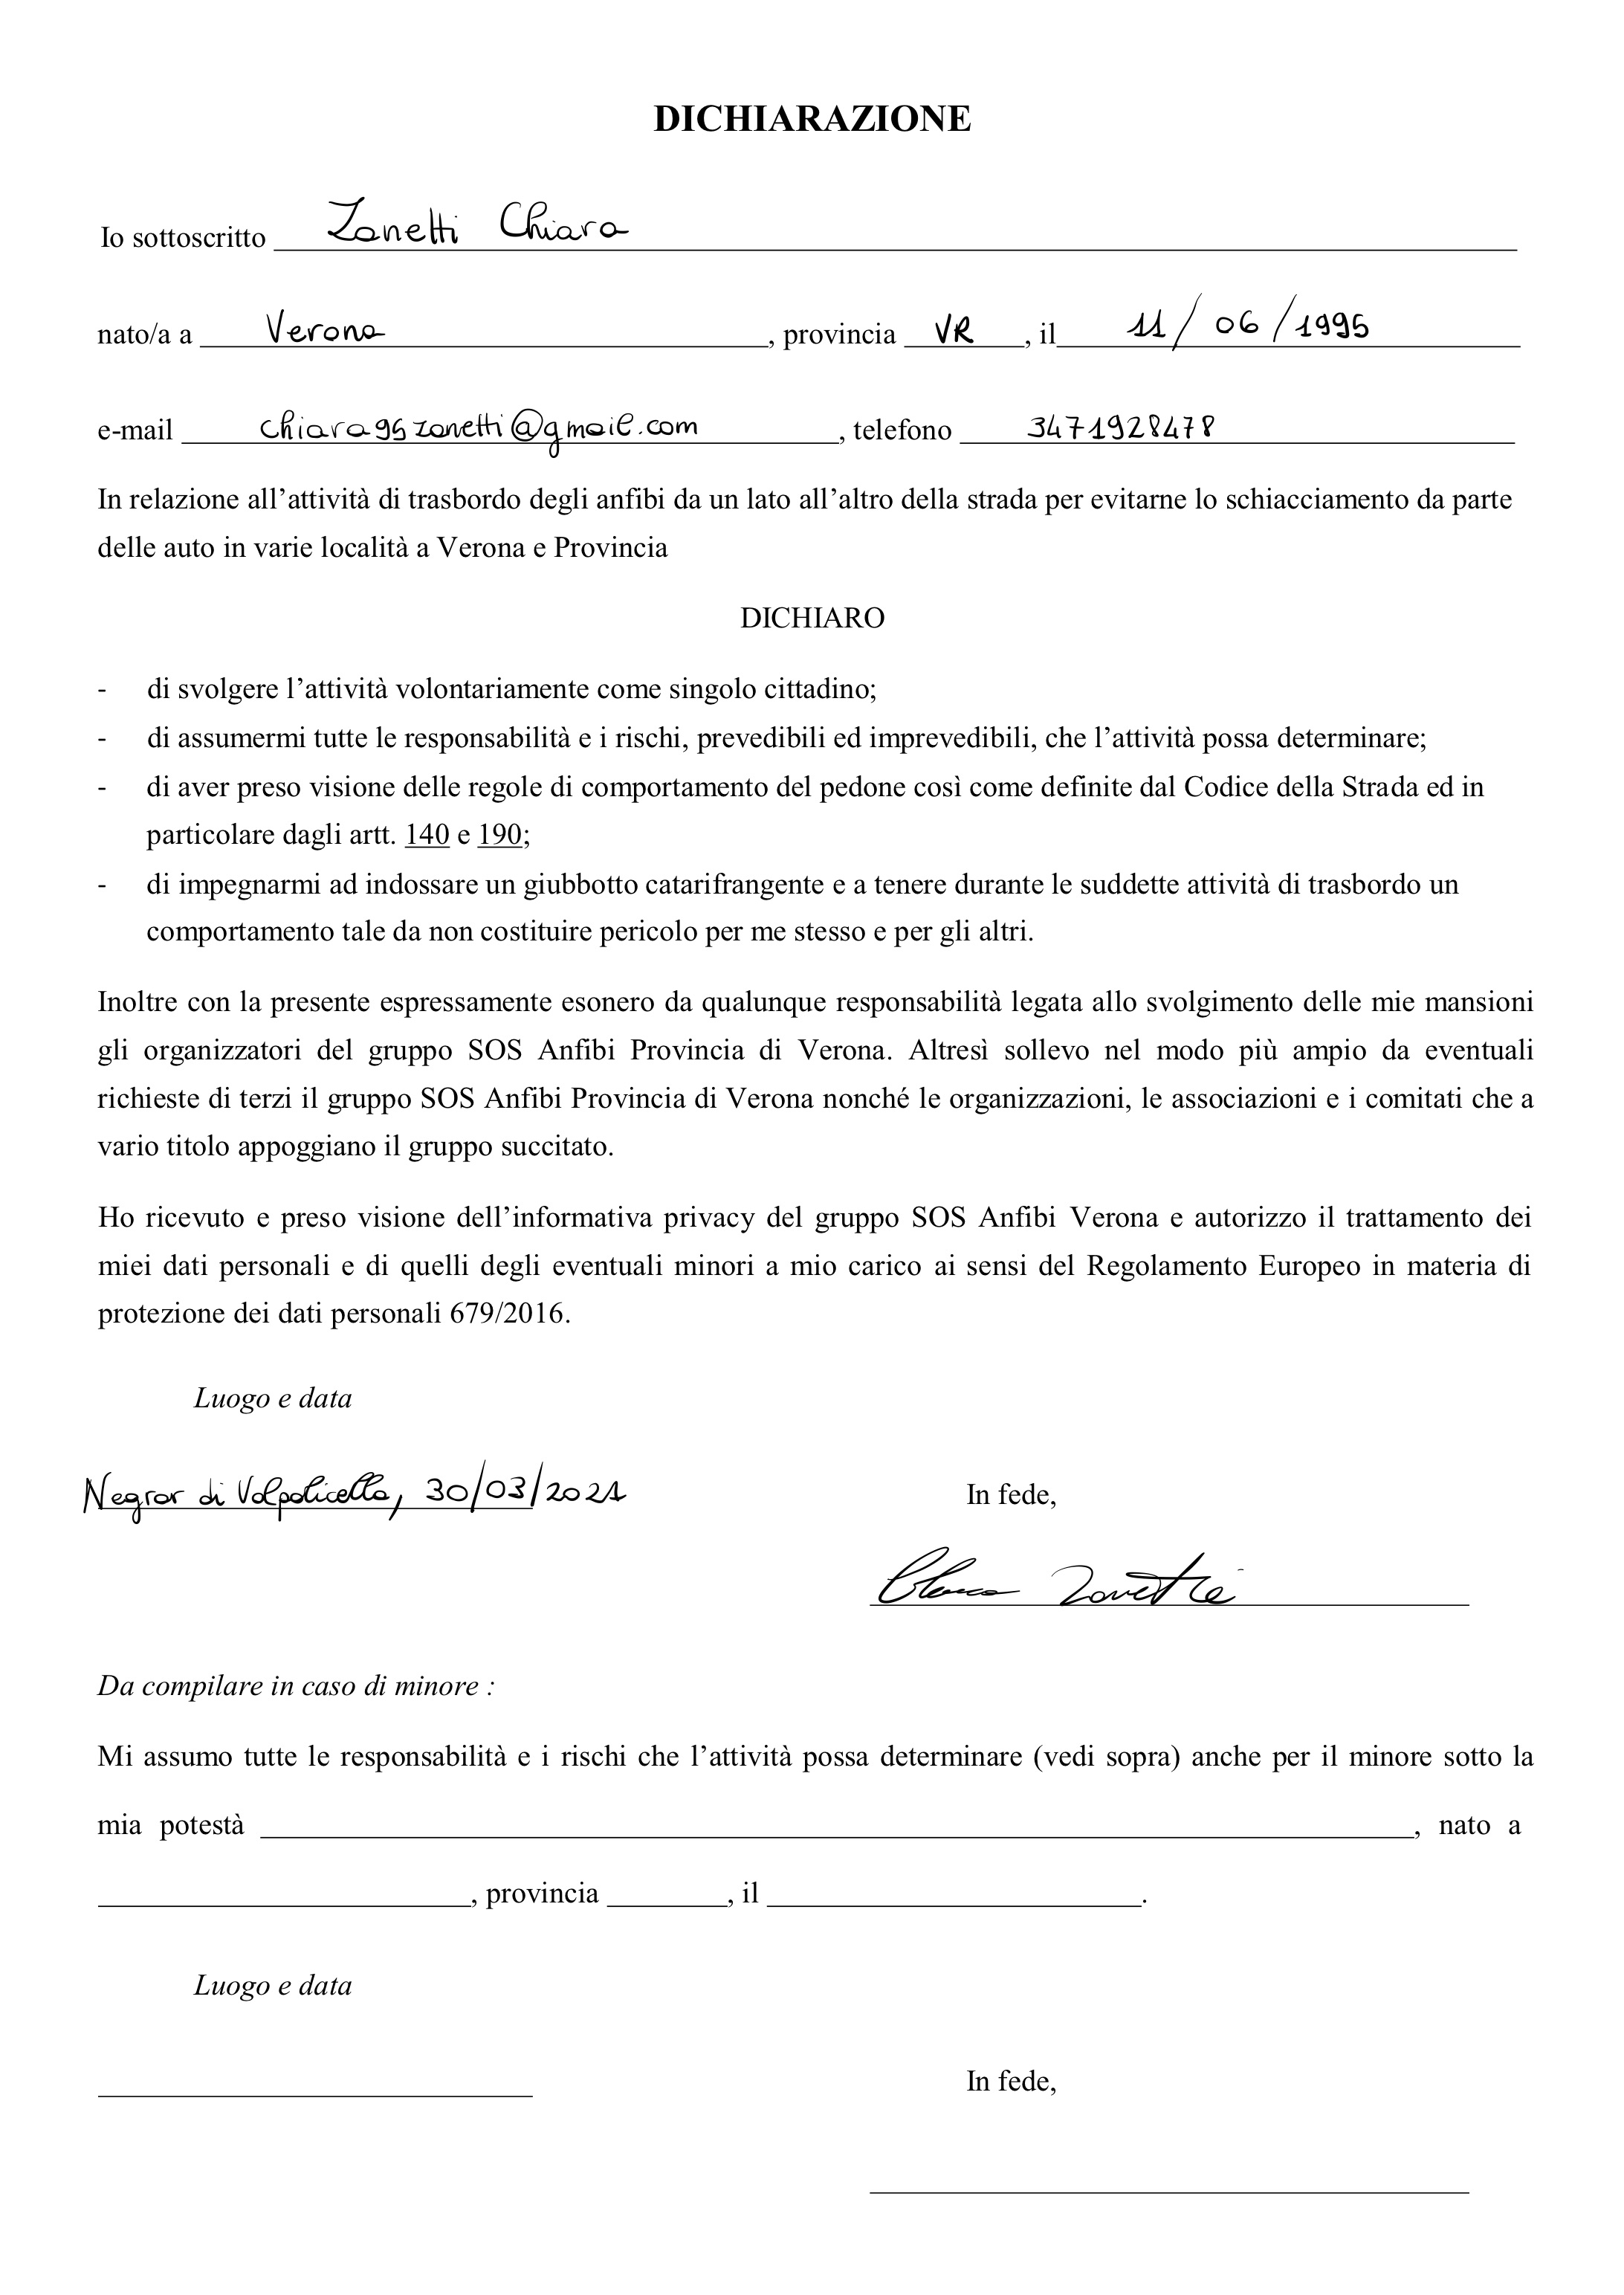 DICHIARAZIONE
Io sottoscritto Zanetti Chiara
nato/a a Verona, provincia VR, il 11/06/1995
e-mail chiara95zanetti@gmail.com, telefono 3471928478
In relazione all’attività di trasbordo degli anfibi da un lato all’altro della strada per evitarne lo schiacciamento da parte
delle auto in varie località a Verona e Provincia
DICHIARO
- di svolgere l’attività volontariamente come singolo cittadino;
- di assumermi tutte le responsabilità e i rischi, prevedibili ed imprevedibili, che l’attività possa determinare;
- di aver preso visione delle regole di comportamento del pedone così come definite dal Codice della Strada ed in
particolare dagli artt. 140 e 190;
- di impegnarmi ad indossare un giubbotto catarifrangente e a tenere durante le suddette attività di trasbordo un
comportamento tale da non costituire pericolo per me stesso e per gli altri.
Inoltre con la presente espressamente esonero da qualunque responsabilità legata allo svolgimento delle mie mansioni
gli organizzatori del gruppo SOS Anfibi Provincia di Verona. Altresì sollevo nel modo più ampio da eventuali
richieste di terzi il gruppo SOS Anfibi Provincia di Verona nonché le organizzazioni, le associazioni e i comitati che a
vario titolo appoggiano il gruppo succitato.
Ho ricevuto e preso visione dell’informativa privacy del gruppo SOS Anfibi Verona e autorizzo il trattamento dei
miei dati personali e di quelli degli eventuali minori a mio carico ai sensi del Regolamento Europeo in materia di
protezione dei dati personali 679/2016.
Luogo e data
Negrar di Valpolicella, 30/03/2021 In fede,
Chiara Zanetti
Da compilare in caso di minore :
Mi assumo tutte le responsabilità e i rischi che l’attività possa determinare (vedi sopra) anche per il minore sotto la
mia potestà , nato a
, provincia , il .
Luogo e data
In fede,